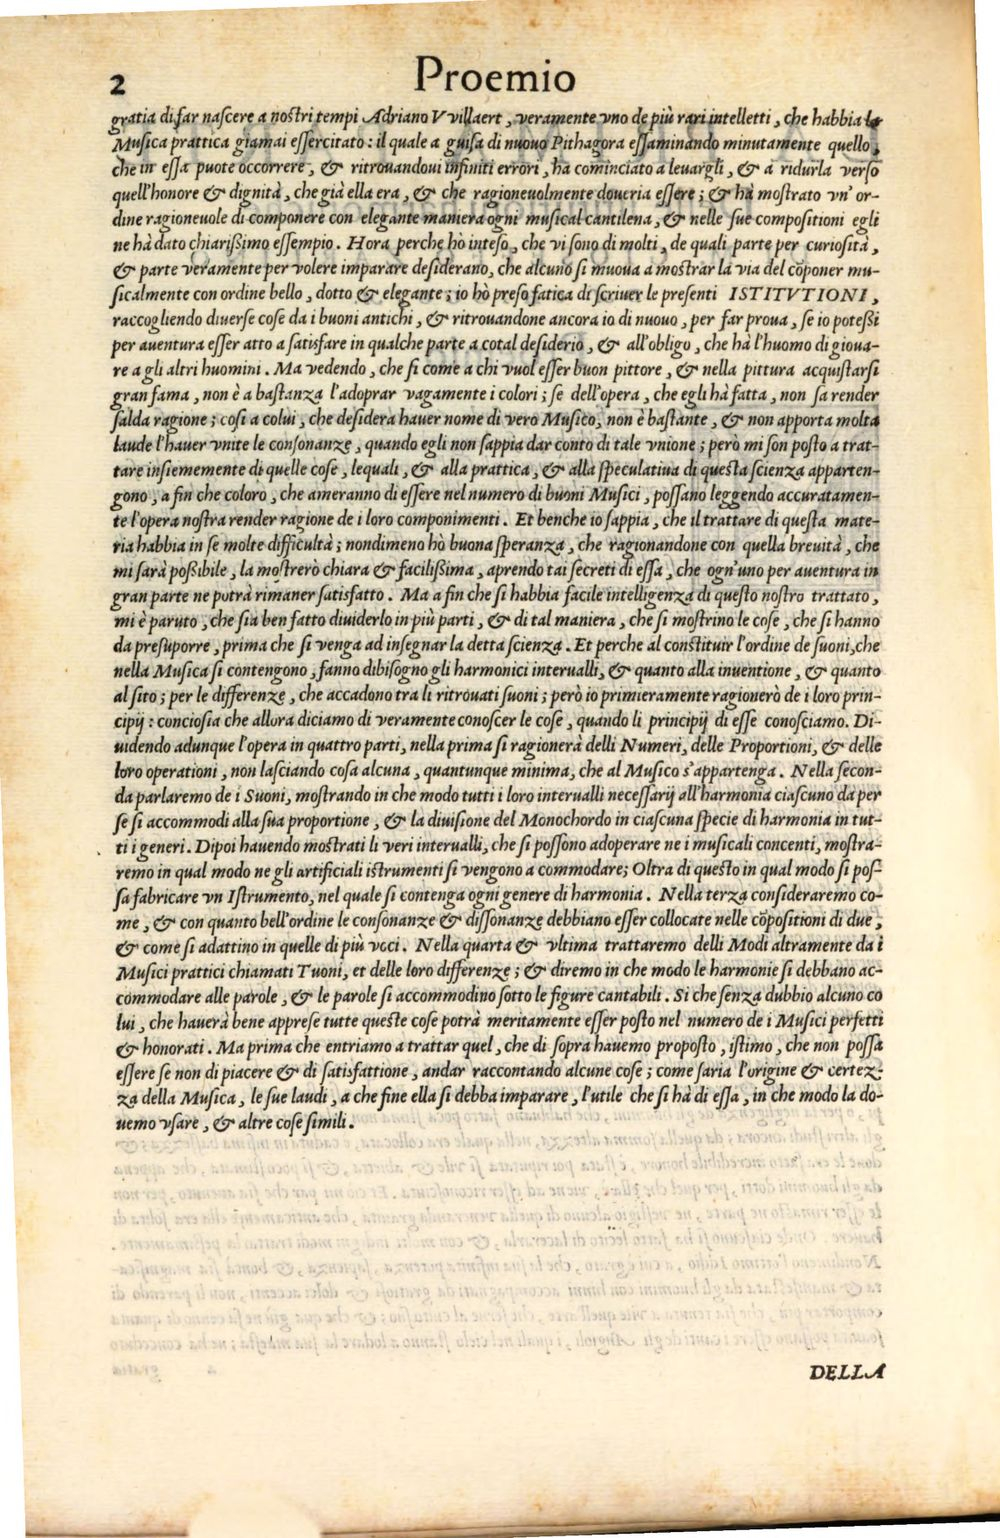 2 Proemio
gratia di far naſcere a noſtri tempi Adriano Vvillaert, veramente vno de più rari intelletti, che habbia la
Muſica prattica giamai eſſercitato: il quale a guiſa di nuouo Pithagora eſſaminando minutamente quello,
che in eſſa puote occorrere, & ritrouandoui infiniti errori, ha cominciato a leuargli, & a ridurla verſo
quell'honore & dignità, che già ella era, & che ragioneuolmente doueria eſſere; & hà moſtrato vn' or-
dine ragioneuole di componere con elegante maniera ogni muſical cantilena, & nelle ſue compoſitioni egli
ne hà dato chiarißimo eſſempio. Hora perche hò inteſo, che vi ſono di molti, de quali parte per curioſità,
& parte veramente per volere imparare deſiderano, che alcuno ſi muoua a moſtrar la via del cõponer mu-
ſicalmente con ordine bello, dotto & elegante; io hò preſo fatica di ſcriuer le preſenti ISTITVTIONI,
raccogliendo diuerſe coſe da i buoni antichi, & ritrouandone ancora io di nuouo, per far proua, ſe io poteßi
per auentura eſſer atto a ſatisfare in qualche parte a cotal deſiderio, & all'obligo, che hà l'huomo di gioua-
re a gli altri huomini. Ma vedendo, che ſi come a chi vuol eſſer buon pittore, & nella pittura acquiſtarſi
gran fama, non è a baſtanza l'adoprar vagamente i colori; ſe dell'opera, che egli hà fatta, non ſa render
ſalda ragione; coſi a colui, che deſidera hauer nome di vero Muſico, non è baſtante, & non apporta molta
laude l'hauer vnite le conſonanze, quando egli non ſappia dar conto di tale vnione; però mi ſon poſto a trat-
tare inſiememente di quelle coſe, lequali, & alla prattica, & alla ſpeculatiua di queſta ſcienza apparten-
gono, a fin che coloro, che ameranno di eſſere nel numero di buoni Muſici, poſſano leggendo accuratamen-
te l'opera noſtra render ragione de i loro componimenti. Et benche io ſappia, che il trattare di queſta mate-
ria habbia in ſe molte difficultà; nondimeno hò buona ſperanza, che ragionandone con quella breuità, che
mi ſarà poßibile, la moſtrerò chiara & facilißima, aprendo tai ſecreti di eſſa, che ogn'uno per auentura in
gran parte ne potrà rimaner ſatisfatto. Ma a fin che ſi habbia facile intelligenza di queſto noſtro trattato,
mi è paruto, che ſia ben fatto diuiderlo in più parti, & di tal maniera, che ſi moſtrino le coſe, che ſi hanno
da preſuporre, prima che ſi venga ad inſegnar la detta ſcienza. Et perche al conſtituir l'ordine de ſuoni, che
nella Muſica ſi contengono, fanno dibiſogno gli harmonici interualli, & quanto alla inuentione, & quanto
al ſito; per le differenze, che accadono tra li ritrouati ſuoni; però io primieramente ragionerò de i loro prin-
cipij: concioſia che allora diciamo di veramente conoſcer le coſe, quando li principij di eſſe conoſciamo. Di-
uidendo adunque l'opera in quattro parti, nella prima ſi ragionerà delli Numeri, delle Proportioni, & delle
loro operationi, non laſciando coſa alcuna, quantunque minima, che al Muſico s'appartenga. Nella ſecon-
da parlaremo de i Suoni, moſtrando in che modo tutti i loro interualli neceſſarij all'harmonia ciaſcuno da per
ſe ſi accommodi alla ſua proportione, & la diuiſione del Monochordo in ciaſcuna ſpecie di harmonia in tut-
ti i generi. Dipoi hauendo moſtrati li veri interualli, che ſi poſſono adoperare ne i muſicali concenti, moſtra-
remo in qual modo ne gli artificiali iſtrumenti ſi vengono a commodare; Oltra di queſto in qual modo ſi poſ-
ſa fabricare vn Iſtrumento, nel quale ſi contenga ogni genere di harmonia. Nella terza conſideraremo co-
me, & con quanto bell'ordine le conſonanze & diſſonanze debbiano eſſer collocate nelle cõpoſitioni di due,
& come ſi adattino in quelle di più voci. Nella quarta & vltima trattaremo delli Modi altramente da i
Muſici prattici chiamati Tuoni, et delle loro differenze; & diremo in che modo le harmonie ſi debbano ac-
commodare alle parole, & le parole ſi accommodino ſotto le figure cantabili. Si che ſenza dubbio alcuno co
lui, che hauerà bene appreſe tutte queſte coſe potrà meritamente eſſer poſto nel numero de i Muſici perfetti
& honorati. Ma prima che entriamo a trattar quel, che di ſopra hauemo propoſto, iſtimo, che non poſſa
eſſere ſe non di piacere & di ſatisfattione, andar raccontando alcune coſe; come ſaria l'origine & certez-
za della Muſica, le ſue laudi, a che fine ella ſi debba imparare, l'utile che ſi hà di eſſa, in che modo la do-
uemo vſare, & altre coſe ſimili.
DELLA